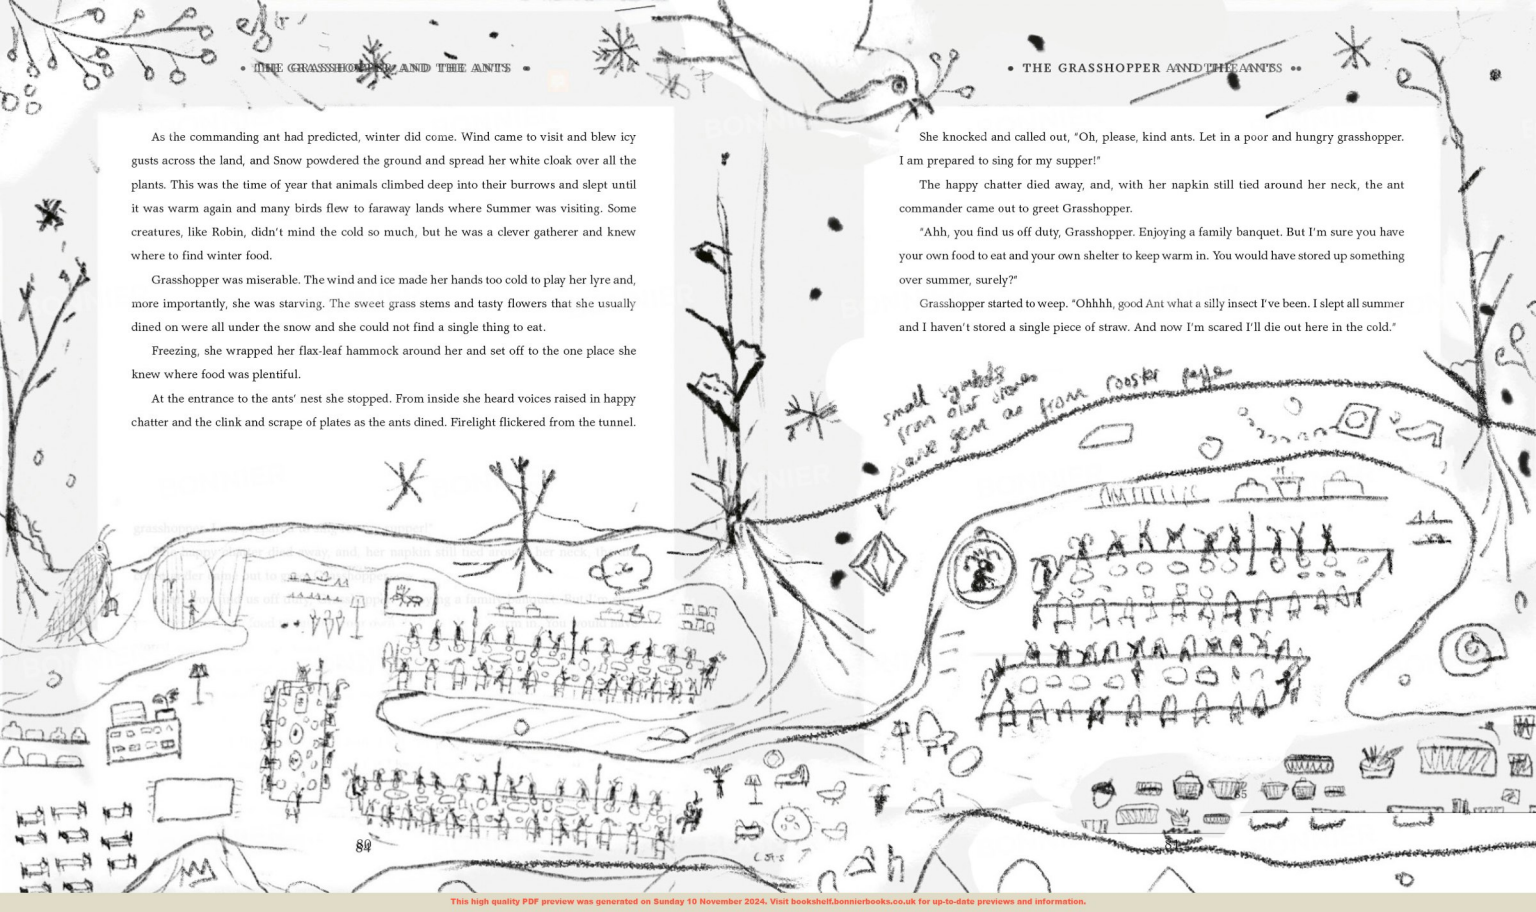 • THE GRASSHOPPER AND THE ANTS •
As the commanding ant had predicted, winter did come. Wind came to visit and blew icy
gusts across the land, and Snow powdered the ground and spread her white cloak over all the
plants. This was the time of year that animals climbed deep into their burrows and slept until
it was warm again and many birds flew to faraway lands where Summer was visiting. Some
creatures, like Robin, didn’t mind the cold so much, but he was a clever gatherer and knew
where to find winter food.
Grasshopper was miserable. The wind and ice made her hands too cold to play her lyre and,
more importantly, she was starving. The sweet grass stems and tasty flowers that she usually
dined on were all under the snow and she could not find a single thing to eat.
Freezing, she wrapped her flax-leaf hammock around her and set off to the one place she
knew where food was plentiful.
At the entrance to the ants’ nest she stopped. From inside she heard voices raised in happy
chatter and the clink and scrape of plates as the ants dined. Firelight flickered from the tunnel.
• THE GRASSHOPPER AND THE ANTS •
She knocked and called out, “Oh, please, kind ants. Let in a poor and hungry grasshopper.
I am prepared to sing for my supper!”
The happy chatter died away, and, with her napkin still tied around her neck, the ant
commander came out to greet Grasshopper.
“Ahh, you find us off duty, Grasshopper. Enjoying a family banquet. But I’m sure you have
your own food to eat and your own shelter to keep warm in. You would have stored up something
over summer, surely?”
Grasshopper started to weep. “Ohhhh, good Ant what a silly insect I’ve been. I slept all summer
and I haven’t stored a single piece of straw. And now I’m scared I’ll die out here in the cold.”
small symbols
from our stories
same gem as from rooster page
This high quality PDF preview was generated on Sunday 10 November 2024. Visit bookshelf.bonnierbooks.co.uk for up-to-date previews and information.